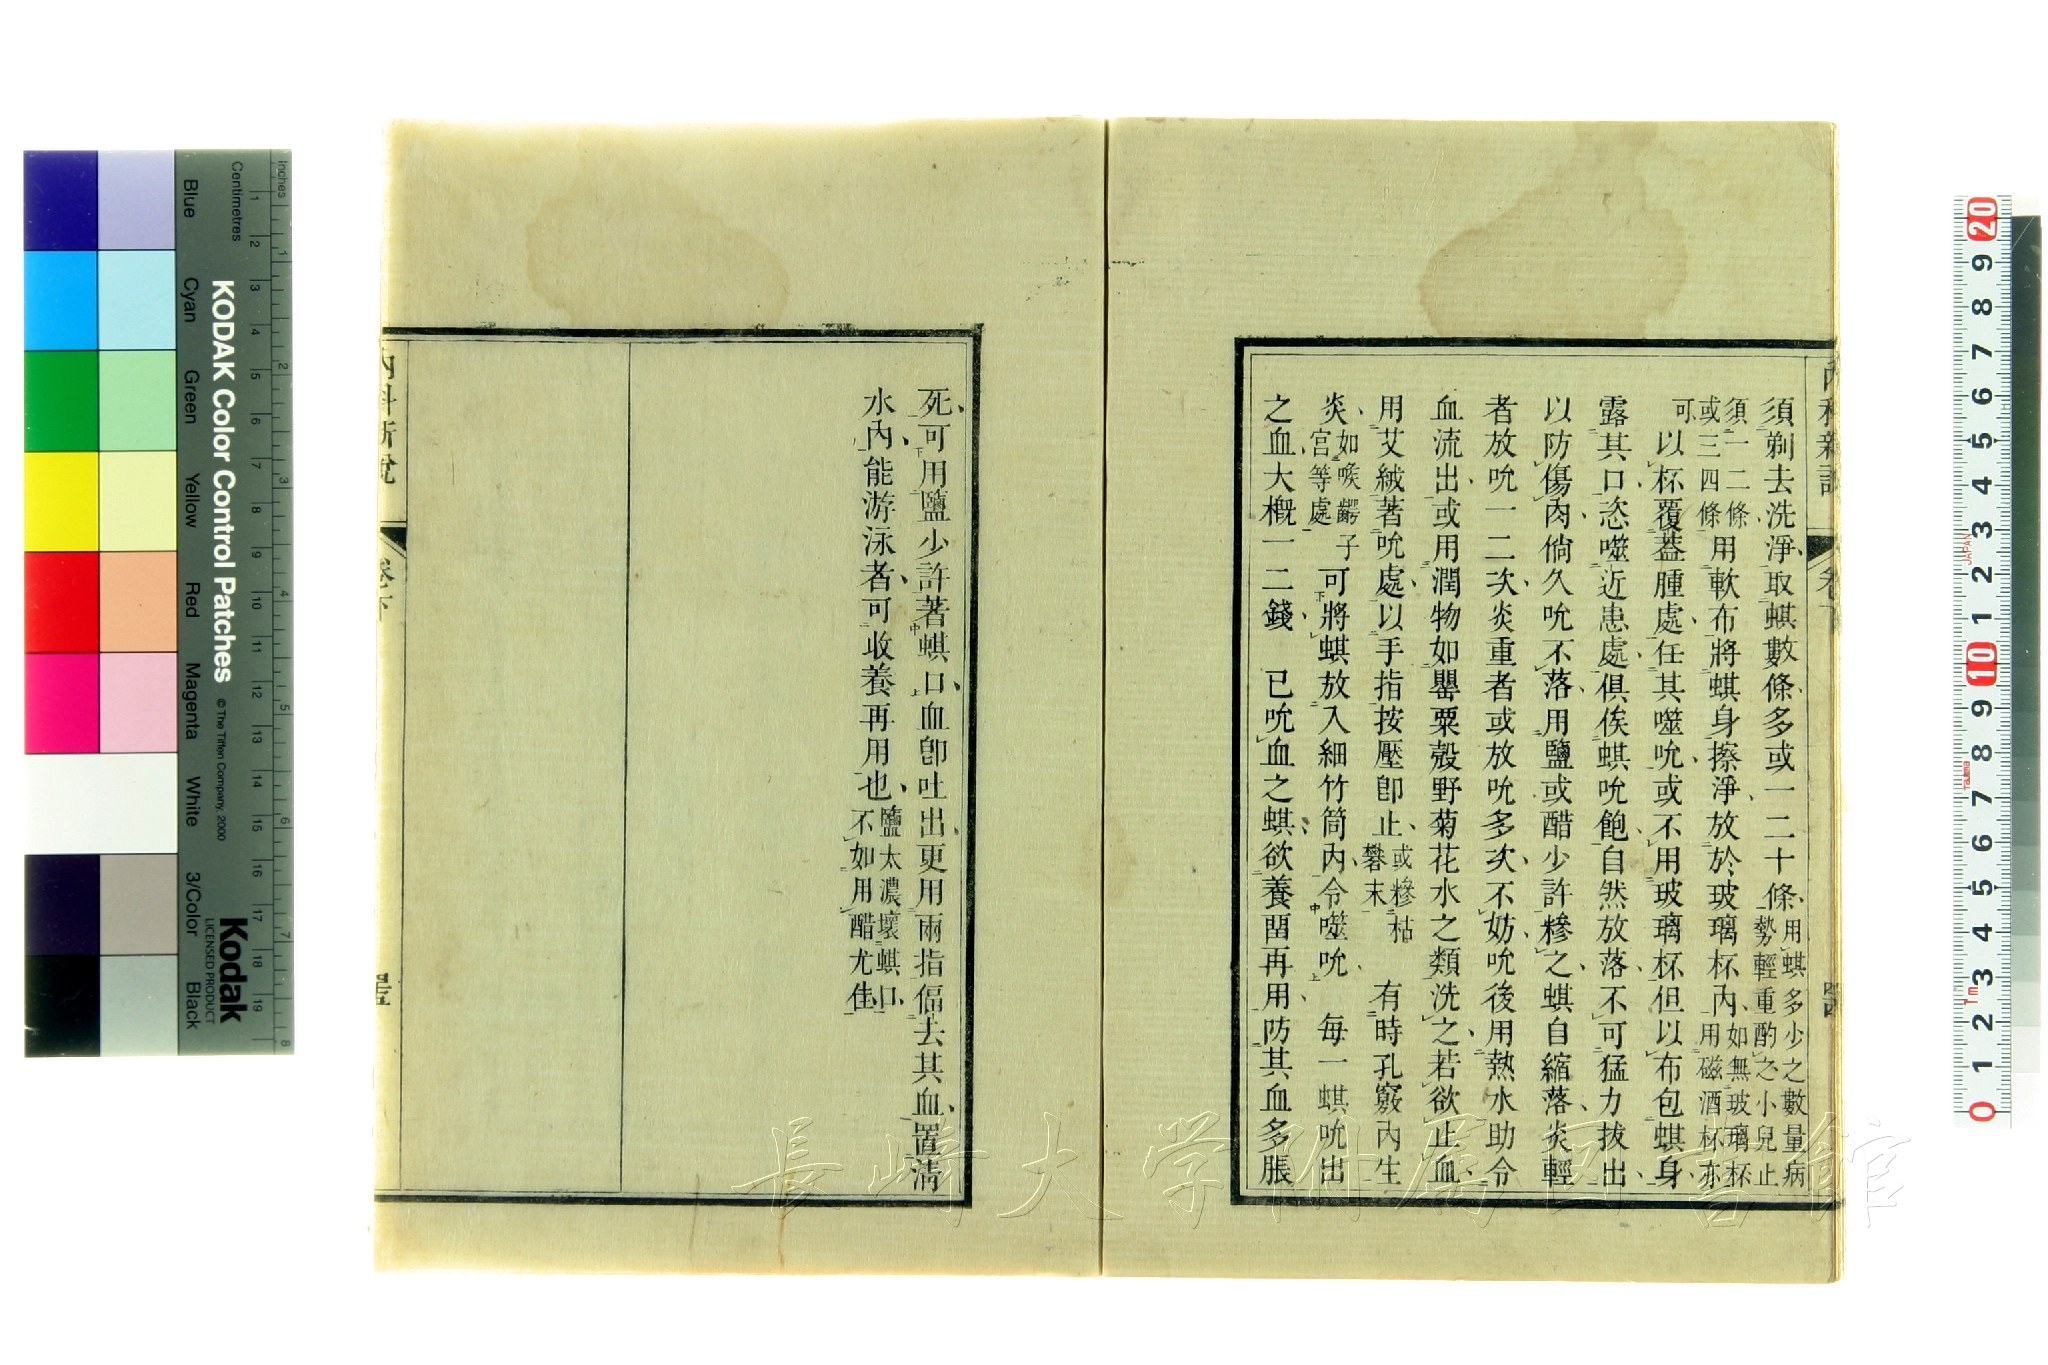 內科新說
卷下
須剃去洗淨取蜞數條多或一二十條用蜞多少之數量病
勢輕重酌之小兒止
須一二條
或三四條
可用軟布將蜞身擦淨放於玻璃杯內如無玻璃杯
用磁酒杯亦
可以杯覆蓋腫處任其噬吮或不用玻璃杯但以布包蜞身
露其口恣噬近患處俱俟蜞吮飽自然放落不可猛力拔出
以防傷肉倘久吮不落用鹽或醋少許糝之蜞自縮落炎輕
者放吮一二次炎重者或放吮多次不妨吮後用熱水助令
血流出或用潤物如罌粟殼野菊花水之類洗之若欲止血
用艾絨著吮處以手指按壓卽止或糝枯
礬末
有時孔竅內生
炎如喉齶子
宮等處
可將蜞放入細竹筒內令噬吮 每一蜞吮出
之血大槪一二錢 已吮血之蜞欲養畱再用防其血多脹
死可用鹽少許著蜞口血卽吐出更用兩指偪去其血置淸
水內能游泳者可收養再用也鹽太濃壞蜞口
不如用醋尤佳
內科新說
卷下
長崎大学附属図書館
Inches
Centimetres
KODAK Color Control Patches
© The Tiffen Company, 2000
Blue
Cyan
Green
Yellow
Red
Magenta
White
3/Color
Black
Kodak
LICENSED PRODUCT
1 2 3 4 5 6 7 8 9 10 11 12 13 14 15 16 17 18 19
1 2 3 4 5 6 7 8
20 9 8 7 6 5 4 3 2 1 10 9 8 7 6 5 4 3 2 1 0
JAPAN
Tajima
1m